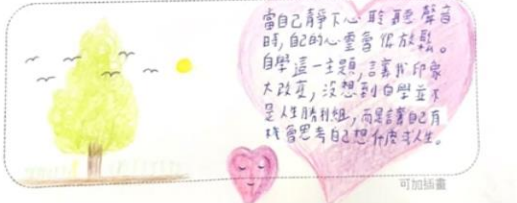 當自己靜下心聆聽聲音
時,自己的心靈會很放鬆。
自學這一主題,讓我印象
大改變,沒想到自學並不
是人生勝利組,而是讓著自己有
機會思考自己想什麼求人生。
可加插畫